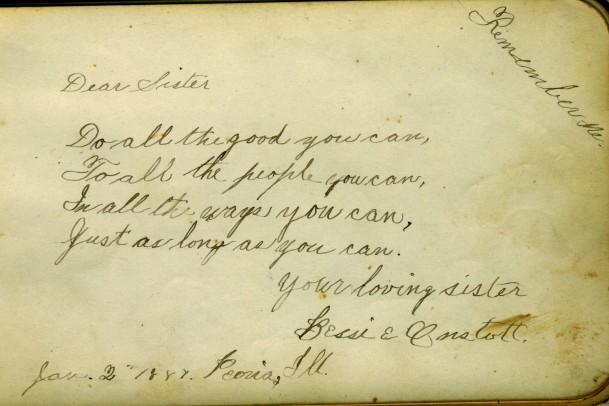 Remember me.
Dear Sister
Do all the good you can,
To all the people you can,
In all the ways you can,
Just as long as you can.
Your loving sister
Bessie Onstott.
Jan. 2" 1887. Peoria, Ill.